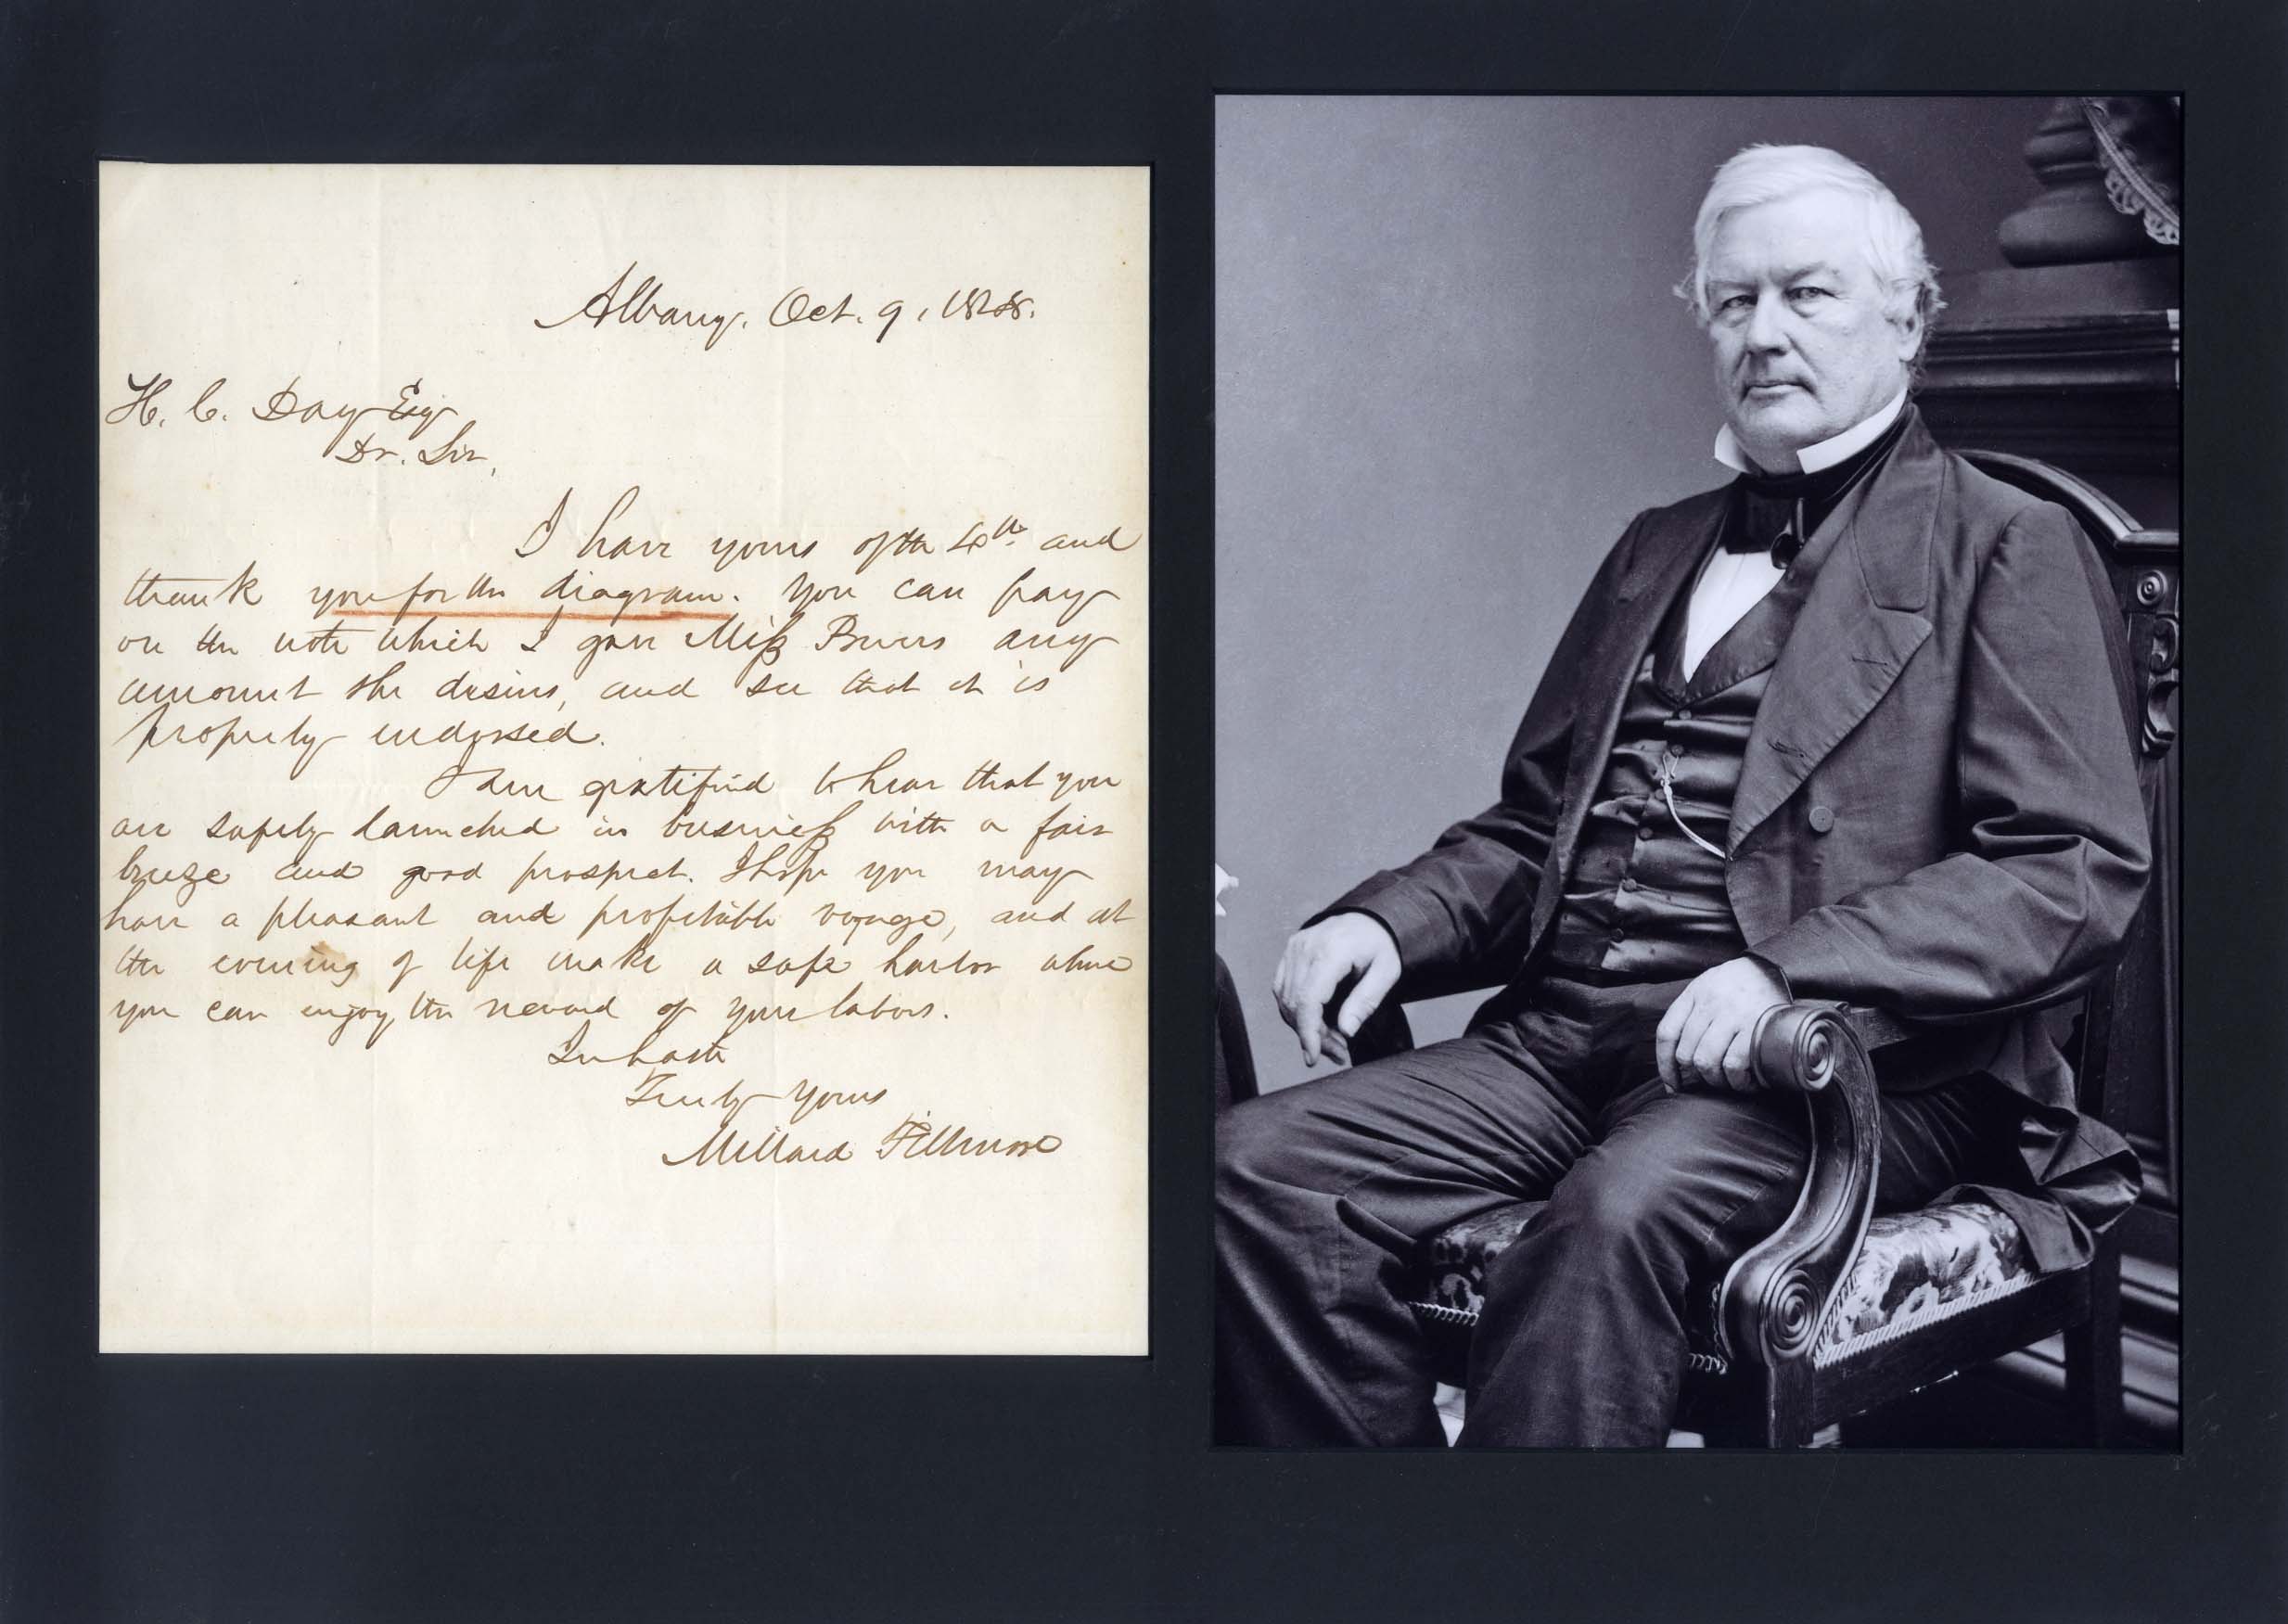 Albany, Oct. 9, 1848.
H. C. Day Esq
Dr. Sir,
I have yours of the 4th and
thank you for the diagram. You can pay
on the note which I gave Miss any
amount she desires, and see that it is
properly endorsed.
I am gratified to hear that you
are safely launched in business with a fair
breeze and good prospect. I hope you may
have a pleasant and profitable voyage, and at
the evening of life make a safe harbor where
you can enjoy the reward of your labors.
In haste
Truly yours
Millard Fillmore